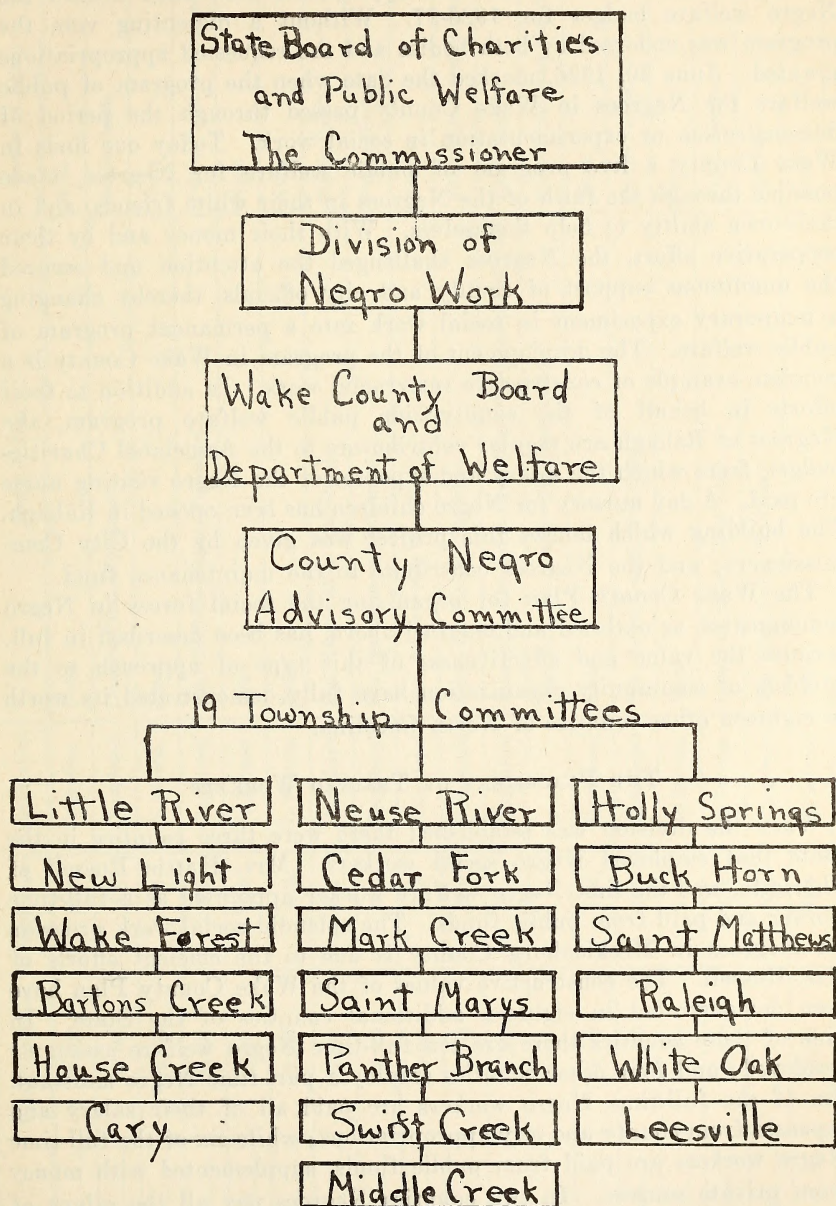 State Board of Charities
and Public Welfare
The Commissioner
Division of
Negro Work
Wake County Board
and
Department of Welfare
County Negro
Advisory Committee
19 Township Committees
Little River
New Light
Wake Forest
Bartons Creek
House Creek
Cary
Neuse River
Cedar Fork
Mark Creek
Saint Marys
Panther Branch
Swift Creek
Middle Creek
Holly Springs
Buck Horn
Saint Matthews
Raleigh
White Oak
Leesville